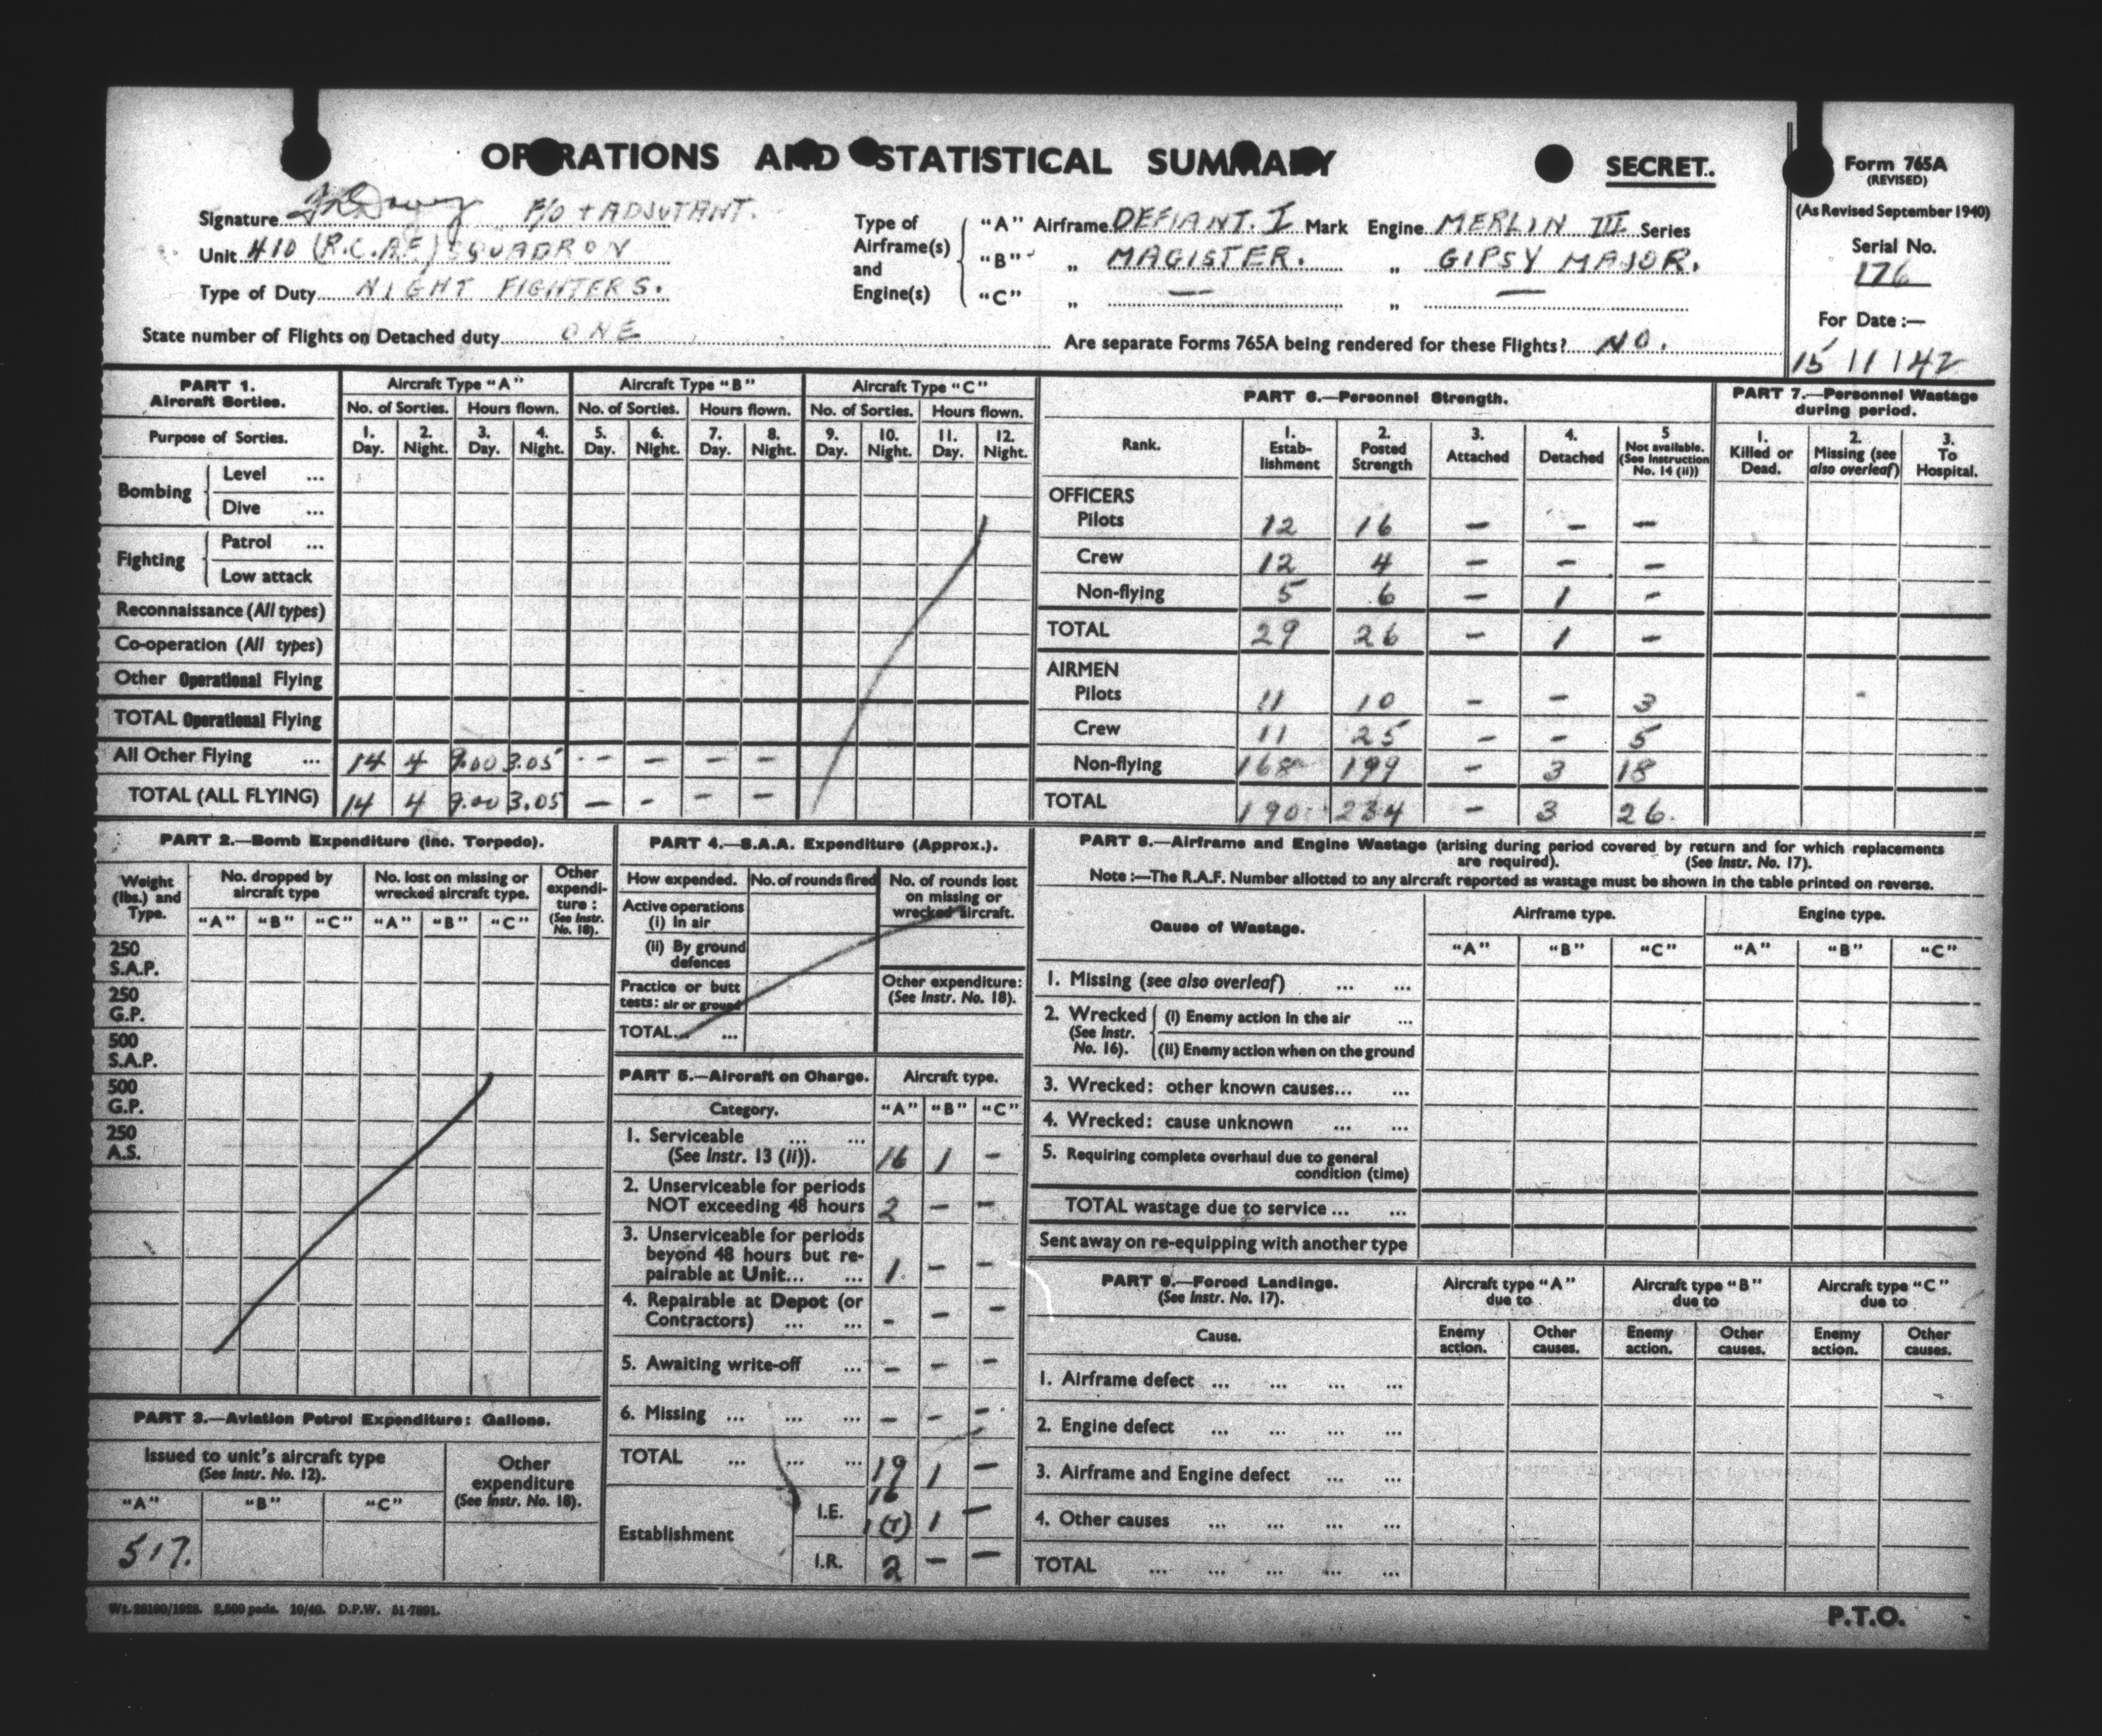 OPERATIONS AND STATISTICAL SUMMARY SECRET.
Form 765A
(REVISED)
(As Revised September 1940)
Signature P/O + ADJUTANT.
Unit 410 (R.C.A.F.) SQUADRON
Type of Duty NIGHT FIGHTERS.
State number of Flights on Detached duty ONE
Type of Airframe(s) and Engine(s)
"A" Airframe DEFIANT. I Mark Engine MERLIN III Series
"B" „ MAGISTER. „ GIPSY MAJOR.
"C" „ — „ —
Are separate Forms 765A being rendered for these Flights? NO.
Serial No.
176
For Date :—
15 / 1 / 42
PART 1.
Aircraft Sorties.
Aircraft Type "A" Aircraft Type "B" Aircraft Type "C"
No. of Sorties. Hours flown. No. of Sorties. Hours flown. No. of Sorties. Hours flown.
Purpose of Sorties.
1. Day. 2. Night. 3. Day. 4. Night. 5. Day. 6. Night. 7. Day. 8. Night. 9. Day. 10. Night. 11. Day. 12. Night.
Bombing
Level ...
Dive ...
Fighting
Patrol ...
Low attack
Reconnaissance (All types)
Co-operation (All types)
Other Operational Flying
TOTAL Operational Flying
All Other Flying ... 14 4 9.00 3.05 - - - -
TOTAL (ALL FLYING) 14 4 9.00 3.05 - - - -
PART 6.—Personnel Strength.
Rank.
1. Estab-lishment
2. Posted Strength
3. Attached
4. Detached
5 Not available. (See Instruction No. 14 (ii))
OFFICERS
Pilots 12 16 - - -
Crew 12 4 - - -
Non-flying 5 6 - 1 -
TOTAL 29 26 - 1 -
AIRMEN
Pilots 11 10 - - 3
Crew 11 25 - - 5
Non-flying 168 199 - 3 18
TOTAL 190 234 - 3 26
PART 7.—Personnel Wastage during period.
1. Killed or Dead.
2. Missing (see also overleaf)
3. To Hospital.
PART 2.—Bomb Expenditure (inc. Torpedo).
Weight (lbs.) and Type.
No. dropped by aircraft type
No. lost on missing or wrecked aircraft type.
Other expendi-ture : (See Instr. No. 18).
"A" "B" "C" "A" "B" "C"
250 S.A.P.
250 G.P.
500 S.A.P.
500 G.P.
250 A.S.
PART 3.—Aviation Petrol Expenditure: Gallons.
Issued to unit's aircraft type
(See Instr. No. 12).
Other expenditure
(See Instr. No. 18).
"A" "B" "C"
517.
PART 4.—S.A.A. Expenditure (Approx.).
How expended. No. of rounds fired No. of rounds lost on missing or wrecked aircraft.
Active operations
(i) In air
(ii) By ground defences
Practice or butt tests: air or ground
Other expenditure:
(See Instr. No. 18).
TOTAL... ...
PART 5.—Aircraft on Charge. Aircraft type.
Category. "A" "B" "C"
1. Serviceable ... ...
(See Instr. 13 (ii)). 16 1 -
2. Unserviceable for periods
NOT exceeding 48 hours 2 - -
3. Unserviceable for periods
beyond 48 hours but re-
pairable at Unit... ... 1 - -
4. Repairable at Depot (or
Contractors) ... ... - - -
5. Awaiting write-off ... - - -
6. Missing ... ... ... - - -
TOTAL ... ... ... 19 1 -
Establishment
I.E. 16 1(T) 1 -
I.R. 2 - -
PART 8.—Airframe and Engine Wastage (arising during period covered by return and for which replacements
are required). (See Instr. No. 17).
Note :—The R.A.F. Number allotted to any aircraft reported as wastage must be shown in the table printed on reverse.
Cause of Wastage. Airframe type. Engine type.
"A" "B" "C" "A" "B" "C"
1. Missing (see also overleaf) ... ...
2. Wrecked (See Instr. No. 16).
(i) Enemy action in the air ...
(ii) Enemy action when on the ground
3. Wrecked: other known causes... ...
4. Wrecked: cause unknown ... ...
5. Requiring complete overhaul due to general
condition (time)
TOTAL wastage due to service ... ...
Sent away on re-equipping with another type
PART 9.—Forced Landings.
(See Instr. No. 17).
Aircraft type "A" due to Aircraft type "B" due to Aircraft type "C" due to
Cause. Enemy action. Other causes. Enemy action. Other causes. Enemy action. Other causes.
1. Airframe defect ... ... ... ...
2. Engine defect ... ... ... ...
3. Airframe and Engine defect ... ...
4. Other causes ... ... ... ...
TOTAL ... ... ... ... ...
P.T.O.